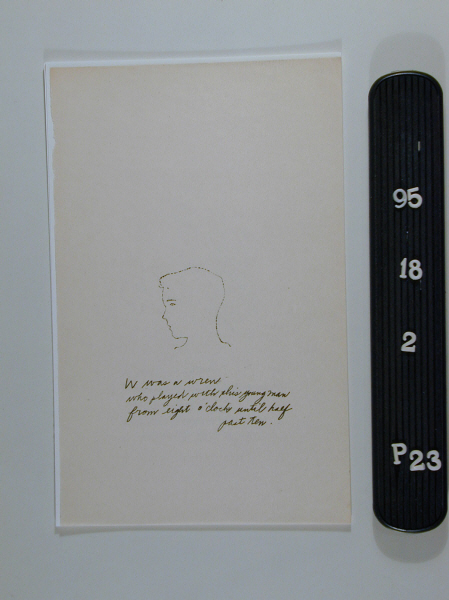 W was a wren
who played with this young man
from eight o'clock until half
past ten.
95
18
2
P23